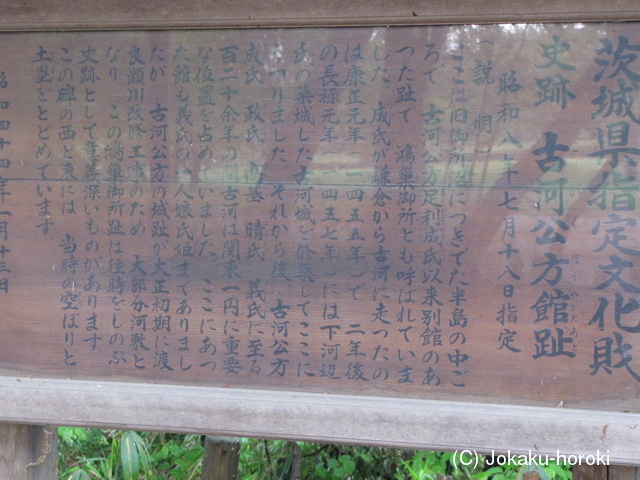 茨城県指定文化財
史跡 古河公方館趾
昭和八年七月十八日指定
(説 明)
ここは旧御所沼につきでた半島の中ご
ろで 古河公方足利成氏以来別館のあ
つた趾で 鴻巣御所とも呼ばれていま
した 成氏が鎌倉から古河に走つたの
は康正元年(一四五五年)で 二年後
の長禄元年(一四五七年)には下河辺
氏の築城した古河城を修築してここに
うつりました それから後 古河公方
成氏 政氏 高基 晴氏 義氏に至る
百二十余年の間古河は関東一円に重要
な位置を占めていました ここにあつ
た館も義氏の一人娘氏姫まてありまし
たが 古河公方の城趾が大正初期に渡
良瀬川改修工事のため 大部分河敷と
なり この鴻巣御所趾は往時をしのぶ
史跡として意義深いものがあります
この碑の西と東には 当時の空ぼりと
土塁をとどめています
昭和四十四年一月十三日
(C) Jokaku-horoki